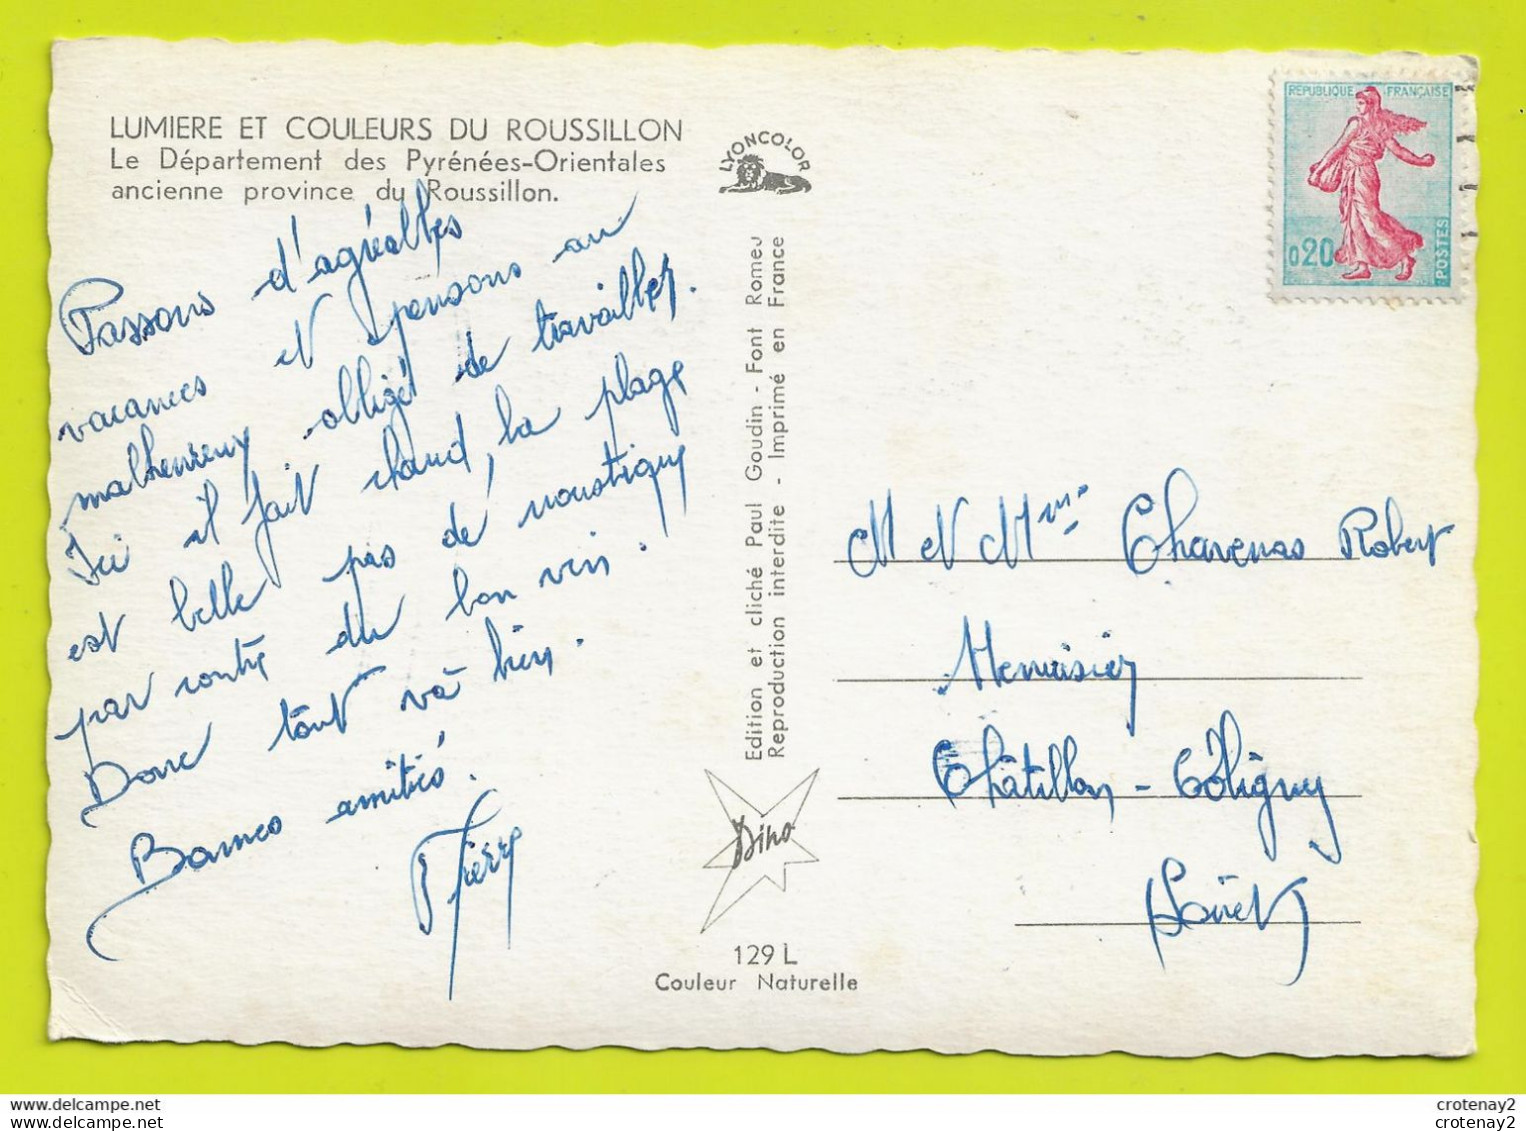 LUMIERE ET COULEURS DU ROUSSILLON
Le Département des Pyrénées-Orientales
ancienne province du Roussillon.
LYONCOLOR
REPUBLIQUE FRANÇAISE
0,20
POSTES
Passons d'agréables
vacances et pensons au
malheureux obligés de travailler.
Ici il fait chaud, la plage
est belle pas de moustique
par contre du bon vin.
Donc tout và bien.
Bonnes amitiés.
Pierre
Edition et cliché Paul Goudin - Font Romeu
Reproduction interdite - Imprimé en France
Dino
129 L
Couleur Naturelle
M et Mme Chavenas Robert
Menuisier
Châtillon-Coligny
(Loiret)
delcampe.net
crotenay2
crotenay2